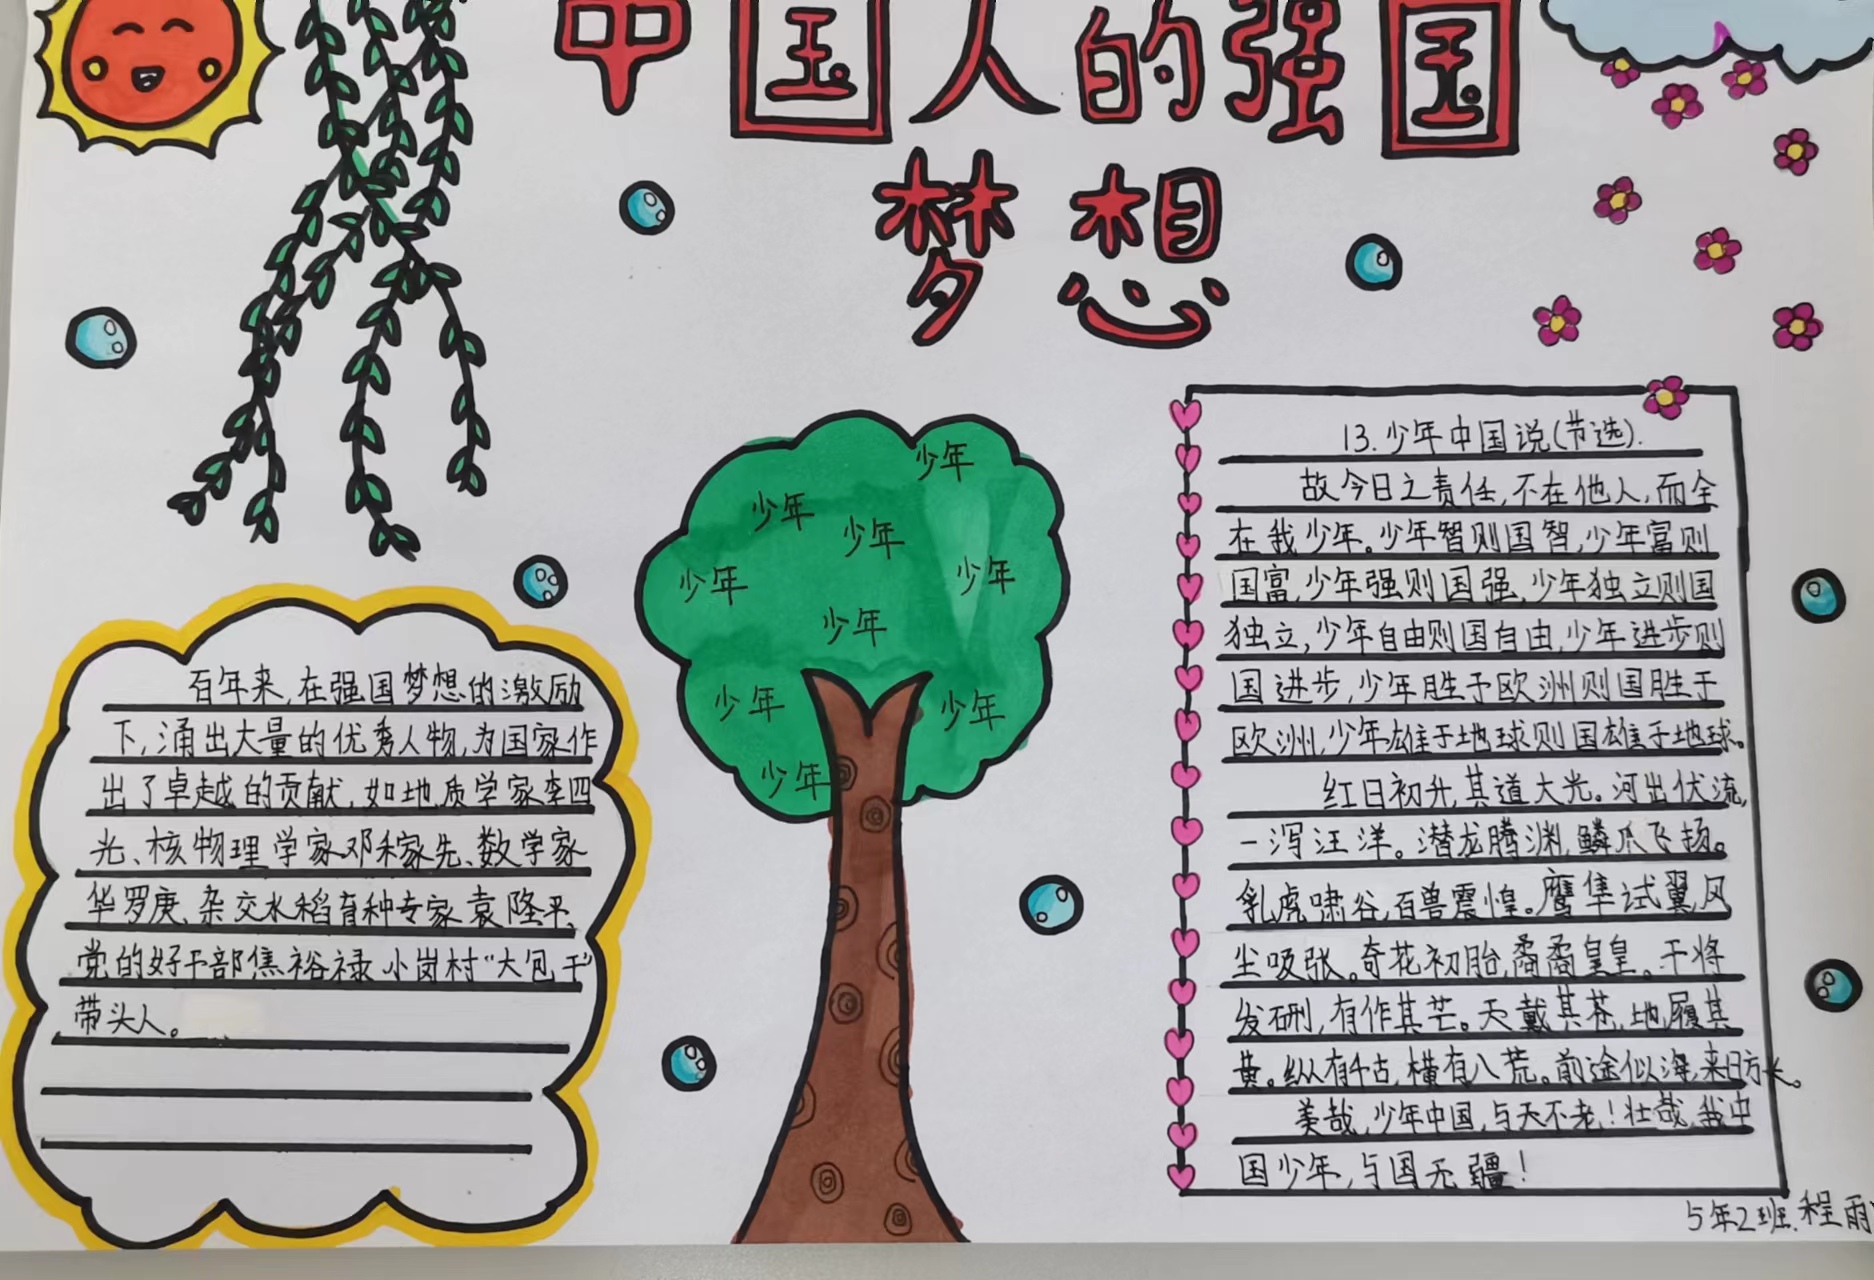 中国人的强国
梦想
少年
少年
少年
少年
少年
少年
少年
少年
少年
百年来,在强国梦想的激励
下,涌出大量的优秀人物,为国家作
出了卓越的贡献,如地质学家李四
光、核物理学家邓稼先、数学家
华罗庚、杂交水稻育种专家袁隆平、
党的好干部焦裕禄、小岗村“大包干”
带头人。
13.少年中国说(节选).
故今日之责任,不在他人,而全
在我少年。少年智则国智,少年富则
国富,少年强则国强,少年独立则国
独立,少年自由则国自由,少年进步则
国进步,少年胜于欧洲则国胜于
欧洲,少年雄于地球则国雄于地球。
红日初升,其道大光。河出伏流,
一泻汪洋。潜龙腾渊,鳞爪飞扬。
乳虎啸谷,百兽震惶。鹰隼试翼,风
尘吸张。奇花初胎,矞矞皇皇。干将
发硎,有作其芒。天戴其苍,地履其
黄。纵有千古,横有八荒。前途似海,来日方长。
美哉,少年中国,与天不老!壮哉,我中
国少年,与国无疆!
5年2班.程雨